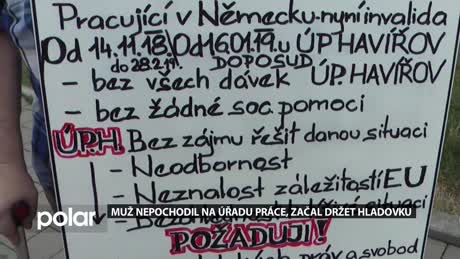 Pracující v Německu-nyní invalida
Od 14.11.18, Od 16.01.19. u ÚP HAVÍŘOV
do 28.2.19. DOPOSUD
– bez všech dávek ÚP. HAVÍŘOV
– bez žádné soc. pomoci
ÚP.H. Bez zájmu řešit danou situaci
– Neodbornost
– Neznalost záležitostí EU
situaci
MUŽ NEPOCHODIL NA ÚŘADU PRÁCE, ZAČAL DRŽET HLADOVKU
polar
POŽADUJI!
práv a svobod